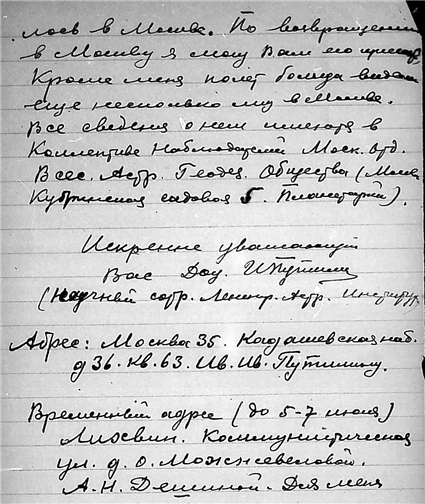 лось в Москве. По возвращении
в Москву я могу Вам его прислать
Кроме меня полет болида видели
еще несколько лиц в Москве.
Все сведения о нем имеются в
Коллективе Наблюдателей Моск. Отд.
Всес. Астр. Геодез. Общества (Москва
Кудринская садовая 5. Планетарий).
Искренне уважающий
Вас Доц. И Путилин
(Научный сотр. Ленингр. Астр. Институт
Адрес: Москва 35. Кадашевская наб.
д 36. кв. 63. Ив. Ив. Путилину.
Временный адрес (до 5-7 июля)
Лихвин. Коммунистическая
ул. д. О. Можжевеловой.
А. Н. Дешиной. Для меня